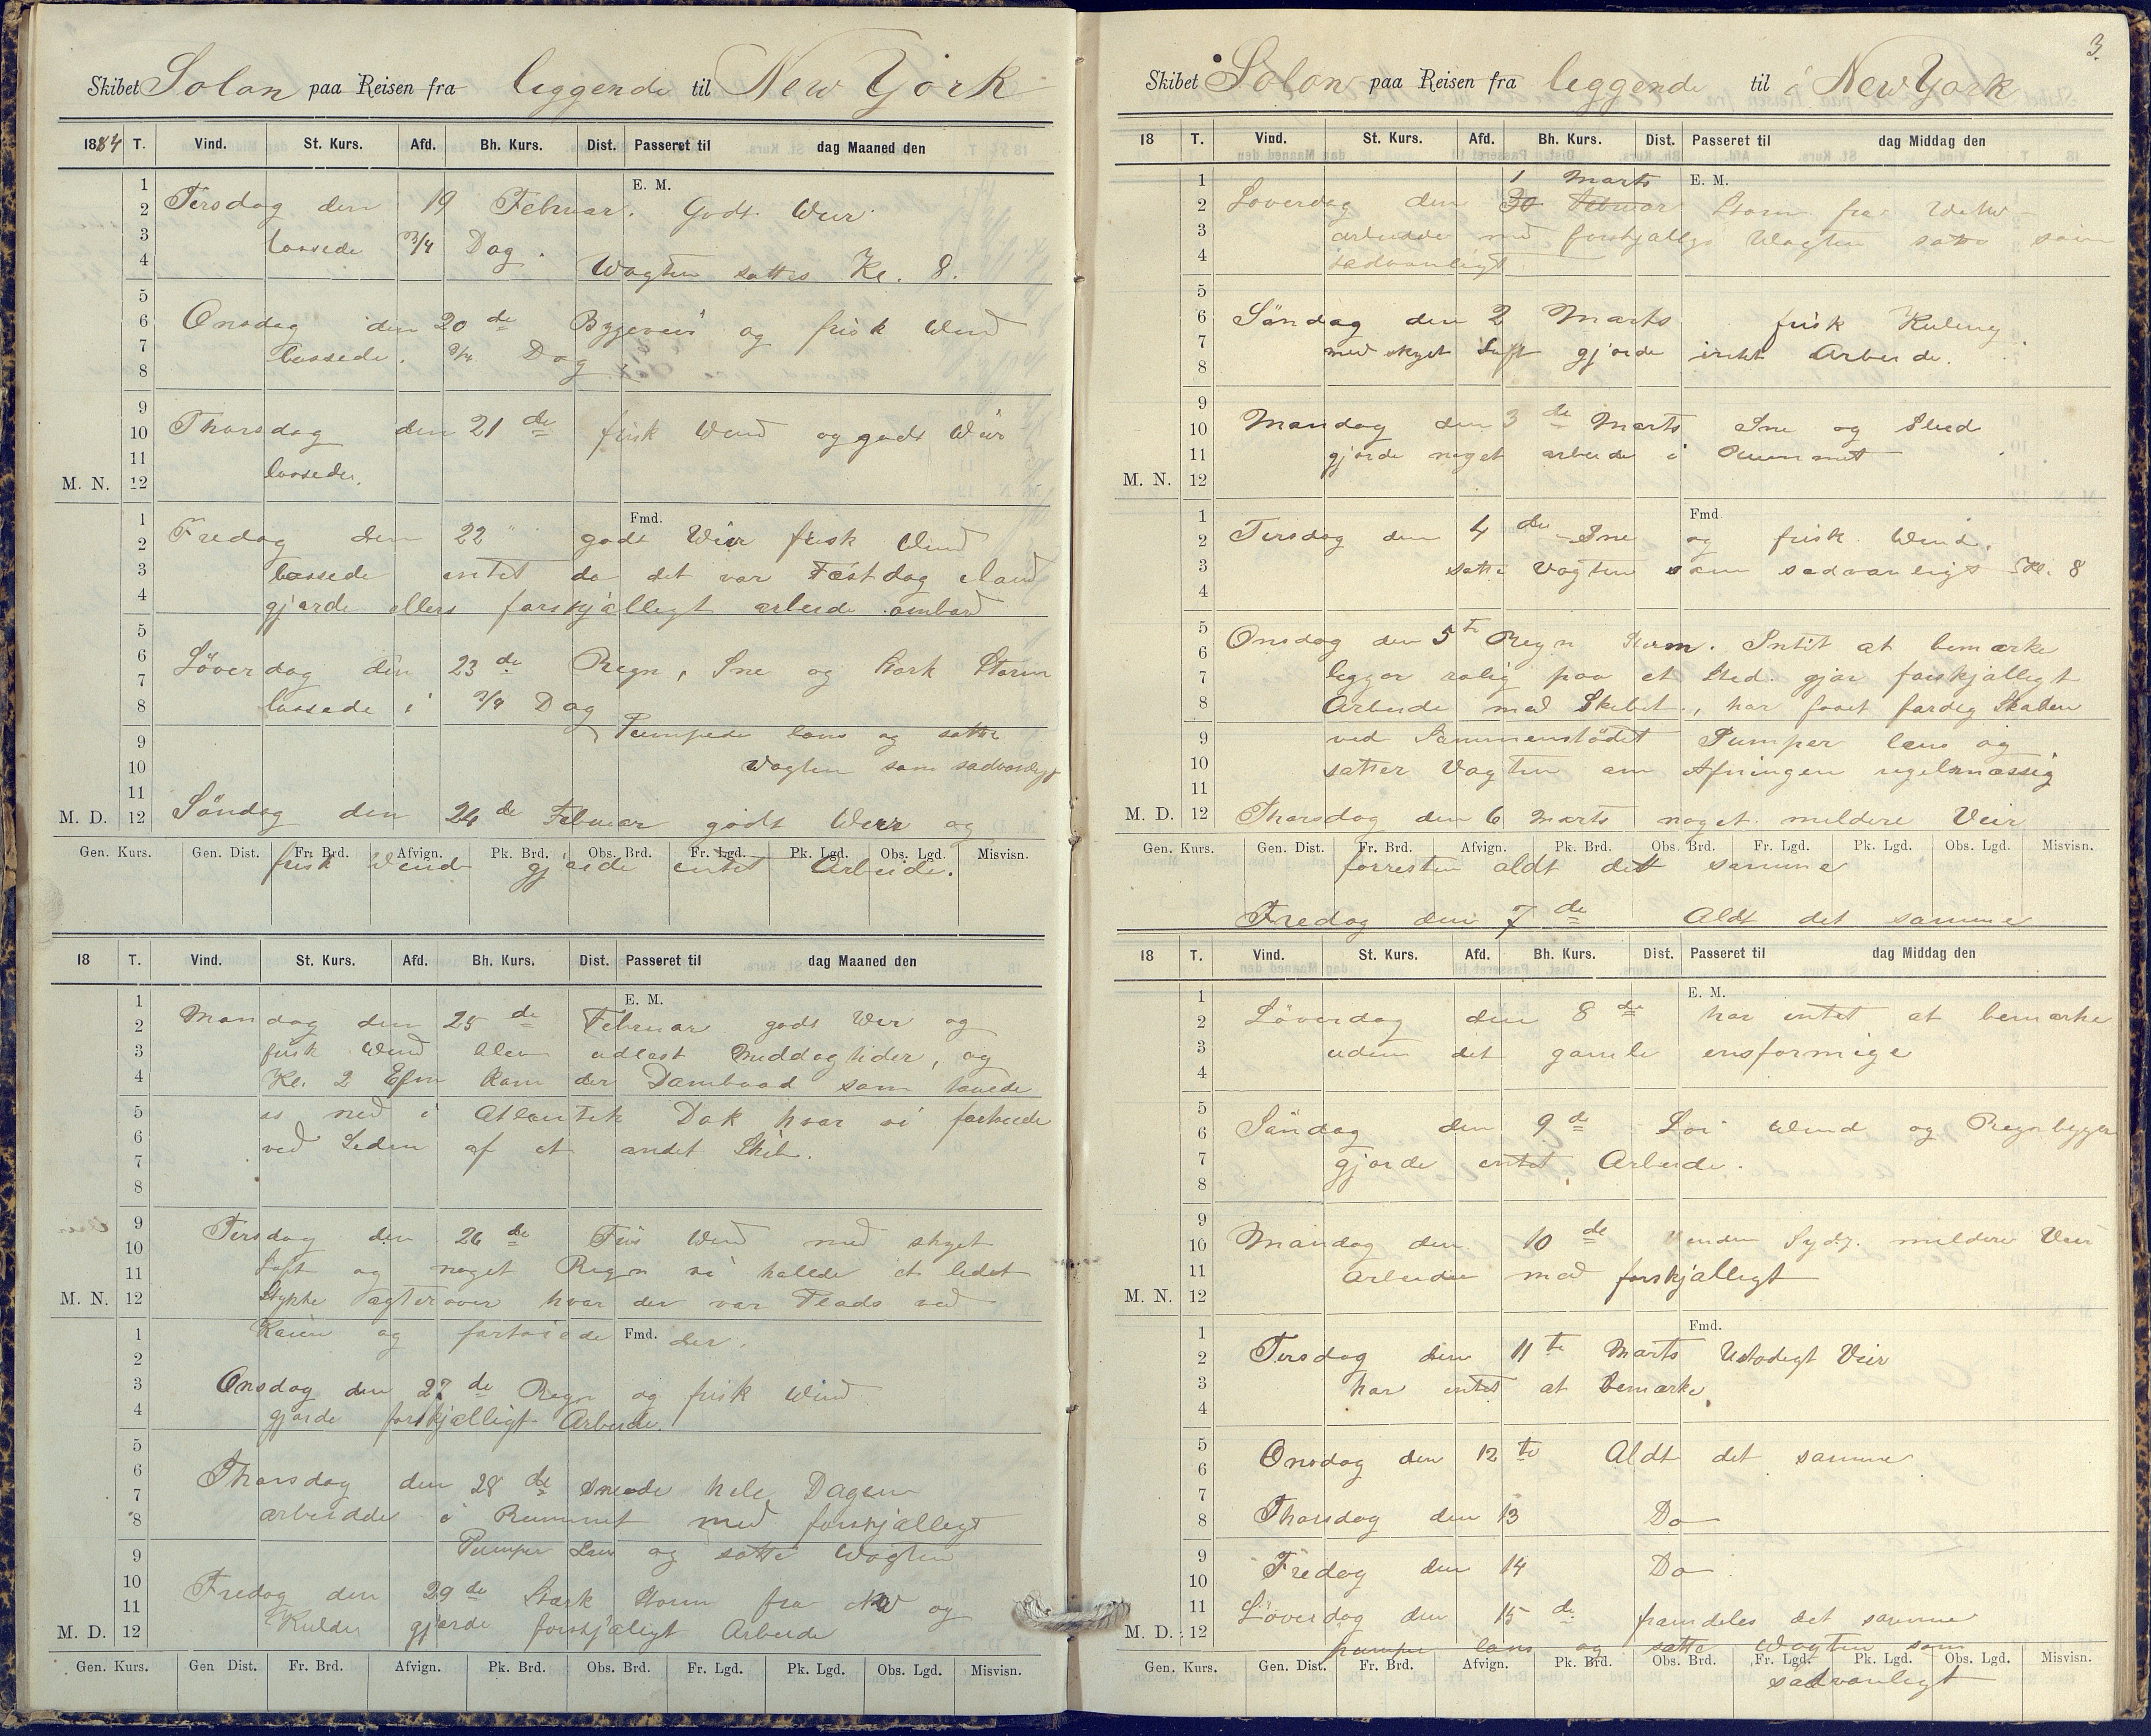 Skibet Solon paa Reisen fra leggende til New York
1884 T. Vind. St. Kurs. Afd. Bh. Kurs. Dist. Passeret til dag Maaned den
E. M.
Tirsdag den 19 Februar. Godt Weir
lossede 3/4 Dag.
Wagten sattes Kl. 8.
Onsdag den 20 de Bygeveir og frisk Wind
lossede. 3/4 Dag
Thorsdag den 21 de frisk Wind og godt Weir
lossede.
M. N.
Fmd.
Fredag den 22 " godt Weir frisk Wind
lossede intet da det var Fæstdag iland
gjorde ellers forskjælligt arbeide ombord
Löverdag den 23 de Regn, Sne og stærk Storm
lossede i 3/4 Dag
Pumpede læns og satte
Wagten som sædvanligt
M. D. Söndag den 24 de Februar godt Weir og
Gen. Kurs. Gen. Dist. Fr. Brd. Afvign. Pk. Brd. Obs. Brd. Fr. Lgd. Pk. Lgd. Obs. Lgd. Misvisn.
frisk Wend gjorde intet Arbeide.
18 T. Vind. St. Kurs. Afd. Bh. Kurs. Dist. Passeret til dag Maaned den
E. M.
Mandag den 25 de Februar godt Weir og
frisk Wind blev udlost Middagtider, og
Kl. 2 Efm kom der Dambaad som touede
os ned i Atlantik Dok hvor vi fortøiede
ved Siden af et andet Skib.
Tirsdag den 26 de Fris Wind med skyet
Loft og noget Regn vi hallede et lidet
M. N. Stykke agterover hvor der var Plads ved
Kaien og fortoiede Fmd. der.
Onsdag den 27 de Regn og frisk Wind
gjorde forskjælligt Arbeide.
Thorsdag den 28 de sneede hele Dagen
arbeidde i Rummet med forskjælligt
Pumper Læns og satte Wagten
Fredag den 29 de Stærk Storm fra NW og
M. D. Kulde gjorde forskjæligt Arbeide
Gen. Kurs. Gen Dist. Fr. Brd. Afvign. Pk. Brd. Obs. Brd. Fr. Lgd. Pk. Lgd. Obs. Lgd. Misvisn.
3.
Skibet Solon paa Reisen fra leggende til i New York
18 T. Vind. St. Kurs. Afd. Bh. Kurs. Dist. Passeret til dag Middag den
1 Marts E. M.
Löverdag den 30 Februar Storm fra
arbeidde med forskjælligt Wagten satte som
sædvanligt
Söndag den 2 Marts frisk Kuling
med skyet Luft gjorde intet Arbeide.
Mandag den 3 de Marts Sne og Slud
gjorde noget arbeide i Rummet
M. N.
Fmd
Tirsdag den 4 de Sne og frisk Wind.
satte Vagten som sædvanligt Kl. 8
Onsdag den 5 te Regn Storm. Intit at bemærke
legger rolig paa et Sted. gjør forskjælligt
Arbeide med Skibet, har faaet færdig Skaden
ved Sammenstödet Pumper læns og
sætter Vagten om Aftningen regelmæssig
M. D. Thorsdag den 6 Marts noget mildere Veir
Gen. Kurs. Gen. Dist. Fr. Brd. Afvign. Pk. Brd. Obs. Brd. Fr. Lgd. Pk. Lgd. Obs. Lgd. Misvisn.
forresten aldt det samme
Fredag den 7 de Aldt det samme
18 T. Vind. St. Kurs. Afd. Bh. Kurs. Dist. Passeret til dag Middag den
E. M.
Löverdag den 8 de har intet at bemærke
uden det gamle ensformige
Söndag den 9 de Lor Wind og Regnbyger
gjorde intet Arbeide.
Mandag den 10 de Vinden Sydl. mildere Veir
arbeide med forskjælligt
M. N.
Fmd.
Tirsdag den 11 te Marts Ustadigt Veir
har intet at Bemærke
Onsdag den 12 te Aldt det samme
Thorsdag den 13 Do
Fredag den 14 Do
Löverdag den 15 de fræmdeles det samme
M. D. pumper læns og satte Wagten som
Gen. Kurs. Gen. Dist. Fr. Brd. Afvign. Pk. Brd. Obs. Brd. Fr. Lgd. Pk. Lgd. Obs. Lgd. Misvisn.
sædvanligt